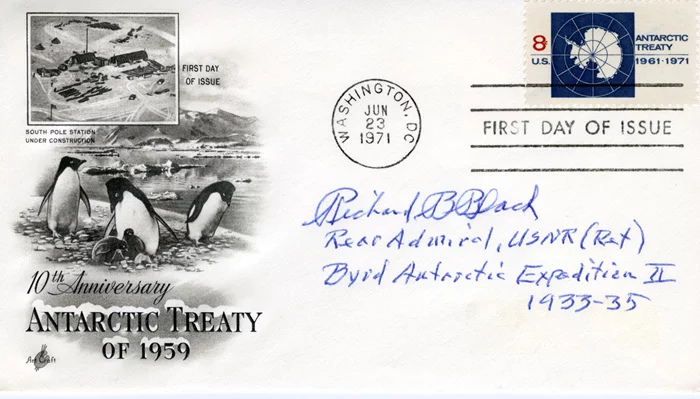 FIRST DAY
OF ISSUE
SOUTH POLE STATION
UNDER CONSTRUCTION
10th Anniversary
ANTARCTIC TREATY
OF 1959
Art Craft
WASHINGTON, DC
JUN
23
1971
8c
U.S.
ANTARCTIC
TREATY
1961·1971
FIRST DAY OF ISSUE
Richard B Black
Rear Admiral, USNR (Ret)
Byrd Antarctic Expedition II
1933-35